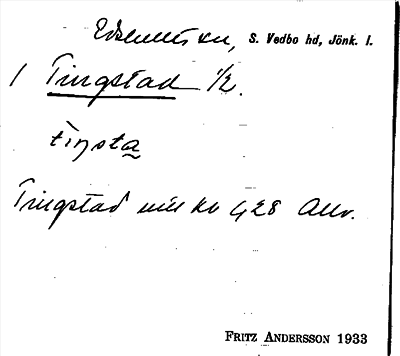 Edshults sn, S. Vedbo hd, Jönk. l.
1 Tingstad 1/2.
tiŋsta
Tingstad 428 Allv.
FRITZ ANDERSSON 1933